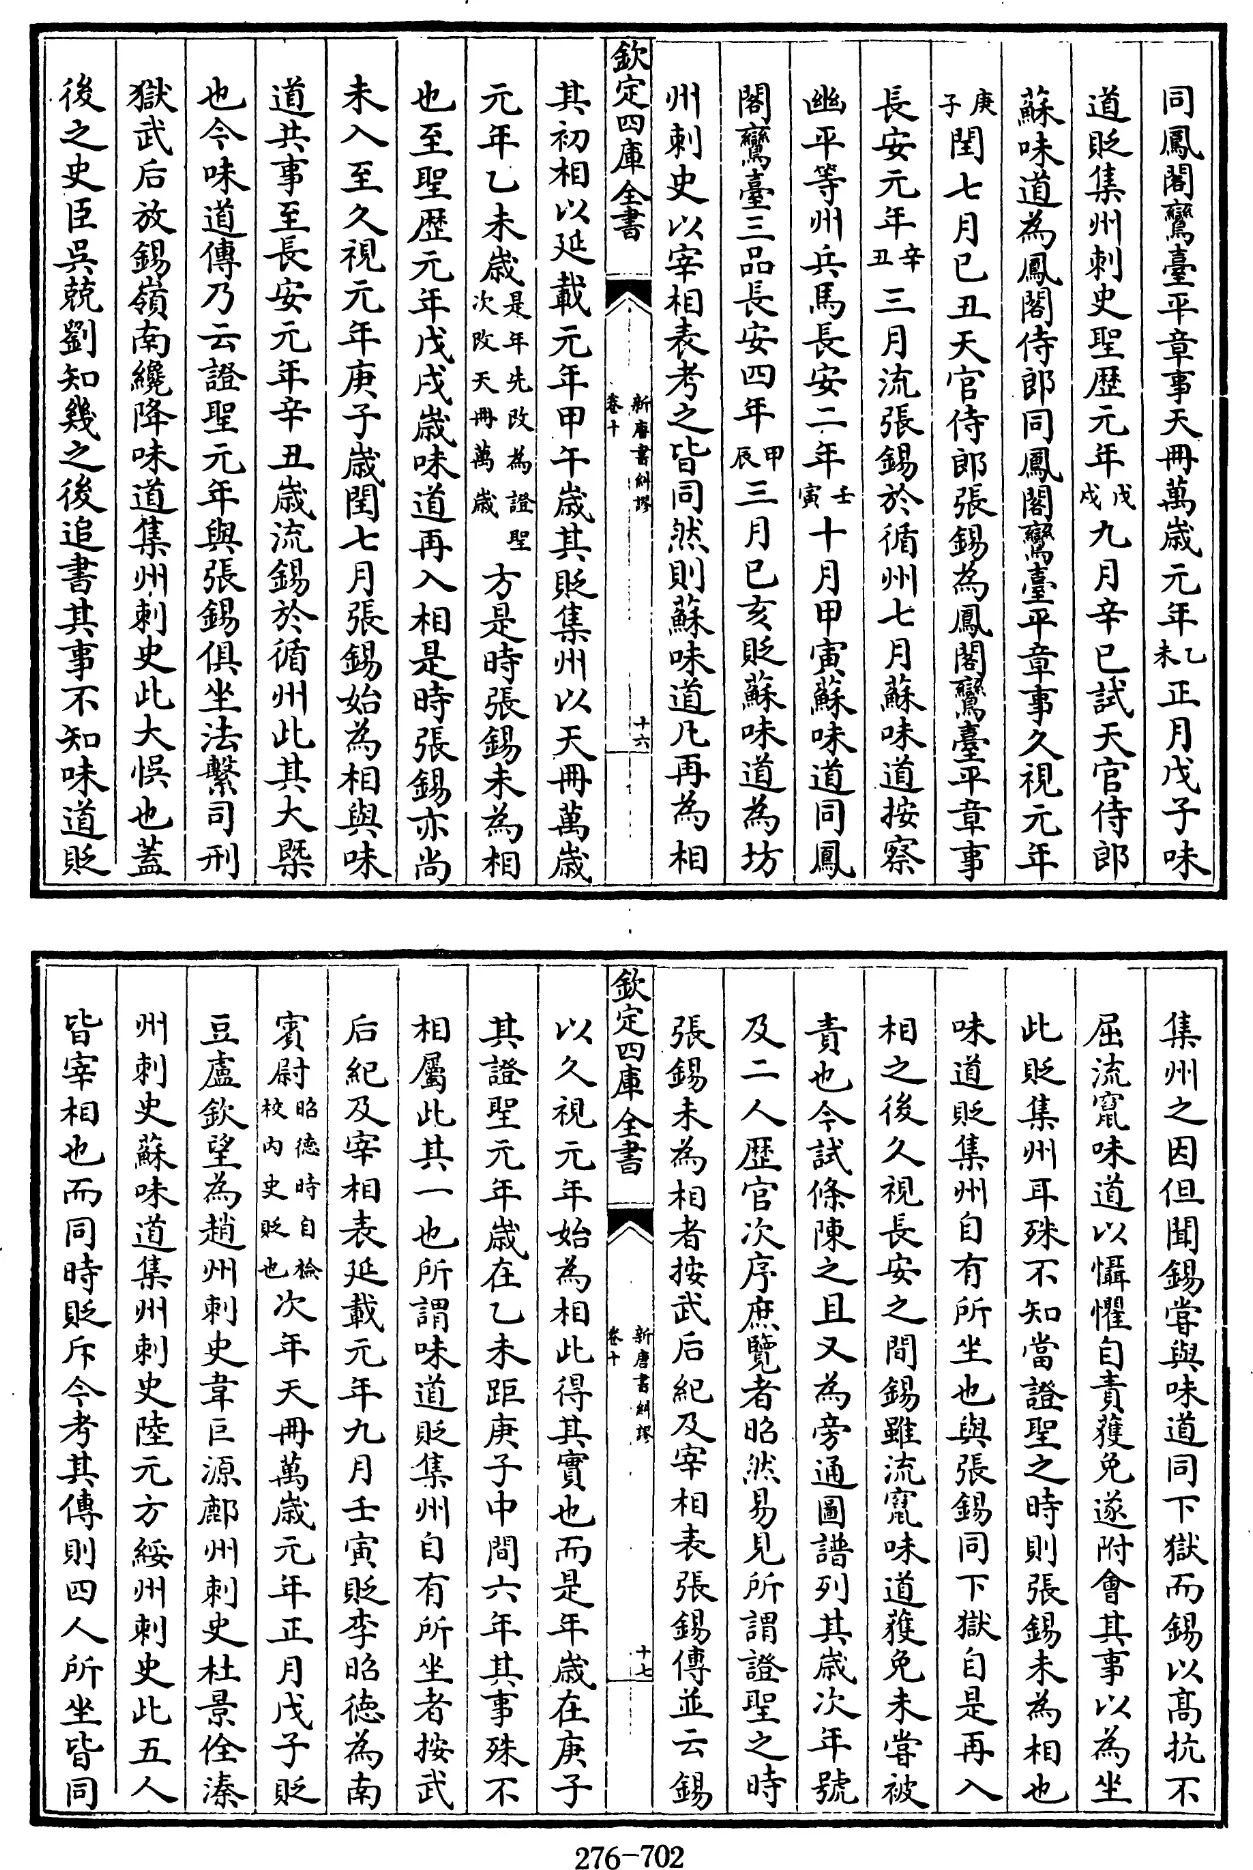 同鳳閣鸞臺平章事天冊萬歲元年乙未正月戊子味
道貶集州刺史聖歴元年戊戌九月辛巳試天官侍郎
蘇味道為鳳閣侍郎同鳳閣鸞臺平章事久視元年
庚子閏七月己丑天官侍郎張錫為鳳閣鸞臺平章事
長安元年辛丑三月流張錫於循州七月蘇味道按察
幽平等州兵馬長安二年壬寅十月甲寅蘇味道同鳳
閣鸞臺三品長安四年甲辰三月己亥貶蘇味道為坊
州刺史以宰相表考之皆同然則蘇味道凡再為相
欽定四庫全書
新唐書糾謬
卷十
十六
其初相以延載元年甲午歲其貶集州以天冊萬歲
元年乙未歲是年先改為證聖次改天冊萬歲方是時張錫未為相
也至聖歴元年戊戌歲味道再入相是時張錫亦尚
未入至久視元年庚子歲閏七月張錫始為相與味
道共事至長安元年辛丑歲流錫於循州此其大槩
也今味道傳乃云證聖元年與張錫俱坐法繫司刑
獄武后放錫嶺南纔降味道集州刺史此大悞也蓋
後之史臣吳兢劉知幾之後追書其事不知味道貶
集州之因但聞錫嘗與味道同下獄而錫以高抗不
屈流竄味道以懾懼自責獲免遂附會其事以為坐
此貶集州耳殊不知當證聖之時則張錫未為相也
味道貶集州自有所坐也與張錫同下獄自是再入
相之後久視長安之間錫雖流竄味道獲免未嘗被
責也今試條陳之且又為旁通圖譜列其歲次年號
及二人歴官次序庶覽者昭然易見所謂證聖之時
張錫未為相者按武后紀及宰相表張錫傳並云錫
欽定四庫全書
新唐書糾謬
卷十
十七
以久視元年始為相此得其實也而是年歲在庚子
其證聖元年歲在乙未距庚子中間六年其事殊不
相屬此其一也所謂味道貶集州自有所坐者按武
后紀及宰相表延載元年九月壬寅貶李昭德為南
賓尉昭德時自檢校內史貶也次年天冊萬歲元年正月戊子貶
豆盧欽望為趙州刺史韋巨源鄜州刺史杜景佺溱
州刺史蘇味道集州刺史陸元方綏州刺史此五人
皆宰相也而同時貶斥今考其傳則四人所坐皆同
276-702